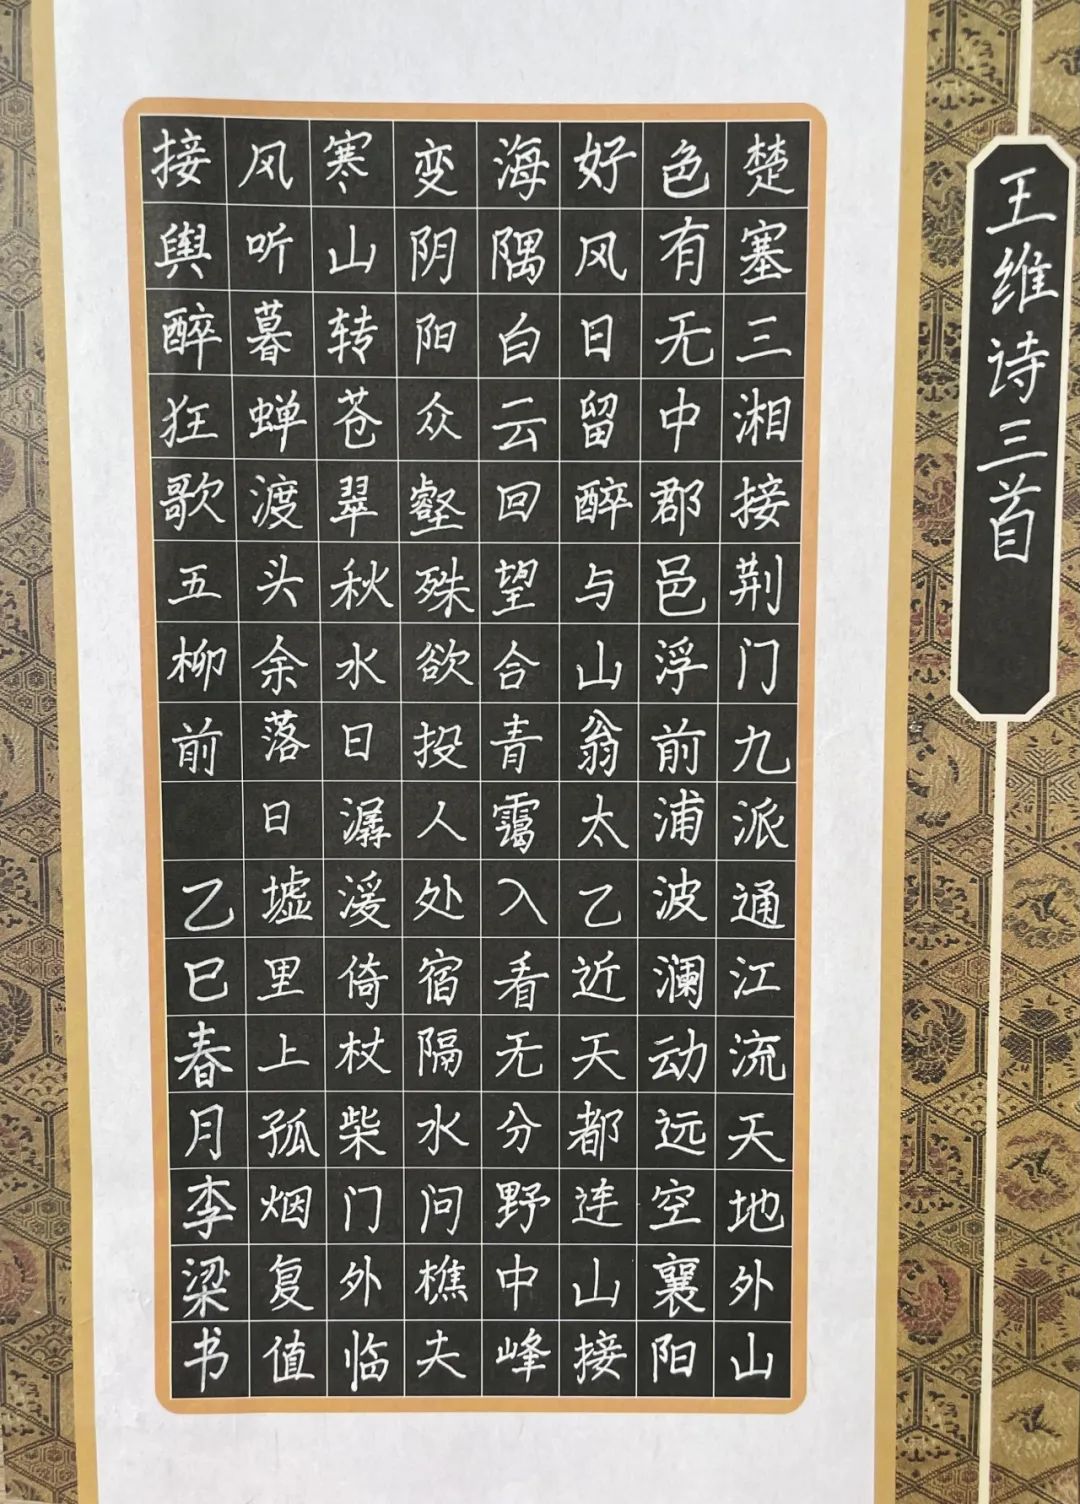 王维诗三首
楚塞三湘接荆门九派通江流天地外山
色有无中郡邑浮前浦波澜动远空襄阳
好风日留醉与山翁太乙近天都连山接
海隅白云回望合青霭入看无分野中峰
变阴阳众壑殊欲投人处宿隔水问樵夫
寒山转苍翠秋水日潺湲倚杖柴门外临
风听暮蝉渡头余落日墟里上孤烟复值
接舆醉狂歌五柳前 乙巳春月李梁书